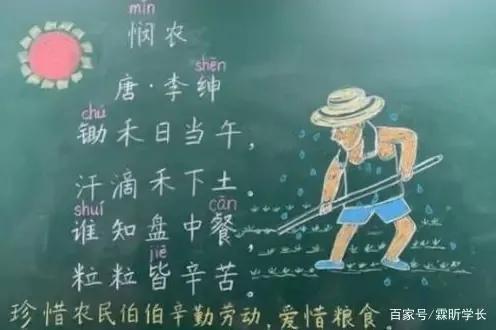 mǐn
悯农
shēn
唐·李绅
chú
锄禾日当午，
汗滴禾下土。
shuí cān
谁知盘中餐，
jiē
粒粒皆辛苦。
珍惜农民伯伯辛勤劳动，爱惜粮食。
百家号/霖昕学长